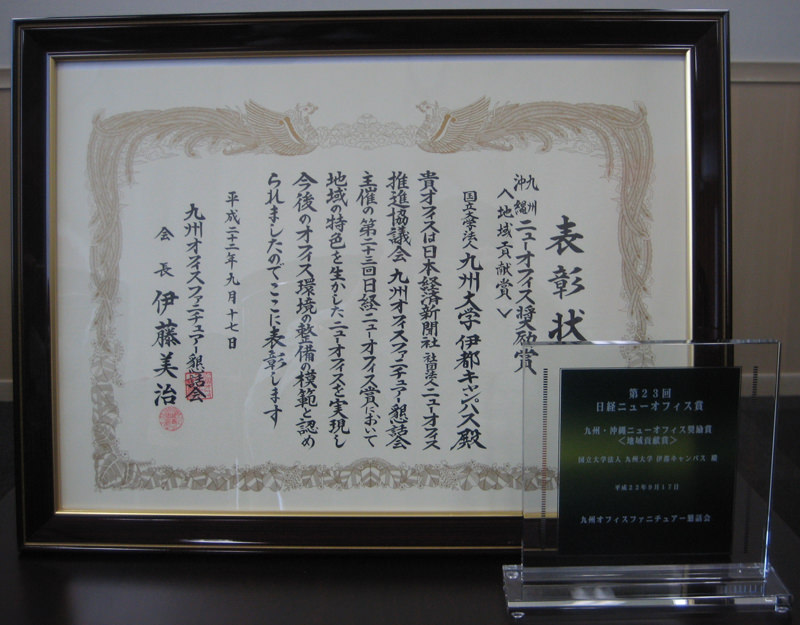 表彰状
九州
沖縄 ニューオフィス奨励賞
＜地域貢献賞＞
国立大学法人 九州大学 伊都キャンパス殿
貴オフィスは日本経済新聞社 社団法人ニューオフィス
推進協議会 九州オフィスファニチュアー懇話会
主催の第二十三回日経ニューオフィス賞において
地域の特色を生かしたニューオフィスを実現し
今後のオフィス環境の整備の模範と認め
られましたのでここに表彰します
平成二十二年九月十七日
九州オフィスファニチュアー懇話会
会長 伊藤美治
第23回
日経ニューオフィス賞
九州・沖縄ニューオフィス奨励賞
＜地域貢献賞＞
国立大学法人 九州大学 伊都キャンパス 殿
平成22年9月17日
九州オフィスファニチュアー懇話会